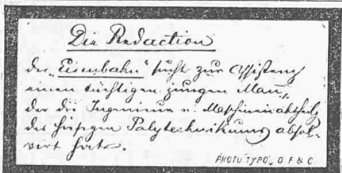 Die Redaction
der „Eisenbahn" sucht zur Assistenz
einen tüchtigen jungen Mann,
der die Ingenieur u. Maschinenabtheilg
des hiesigen Polytechnikums absol-
virt hat.
PHOTOTYPO. O. F. & C.